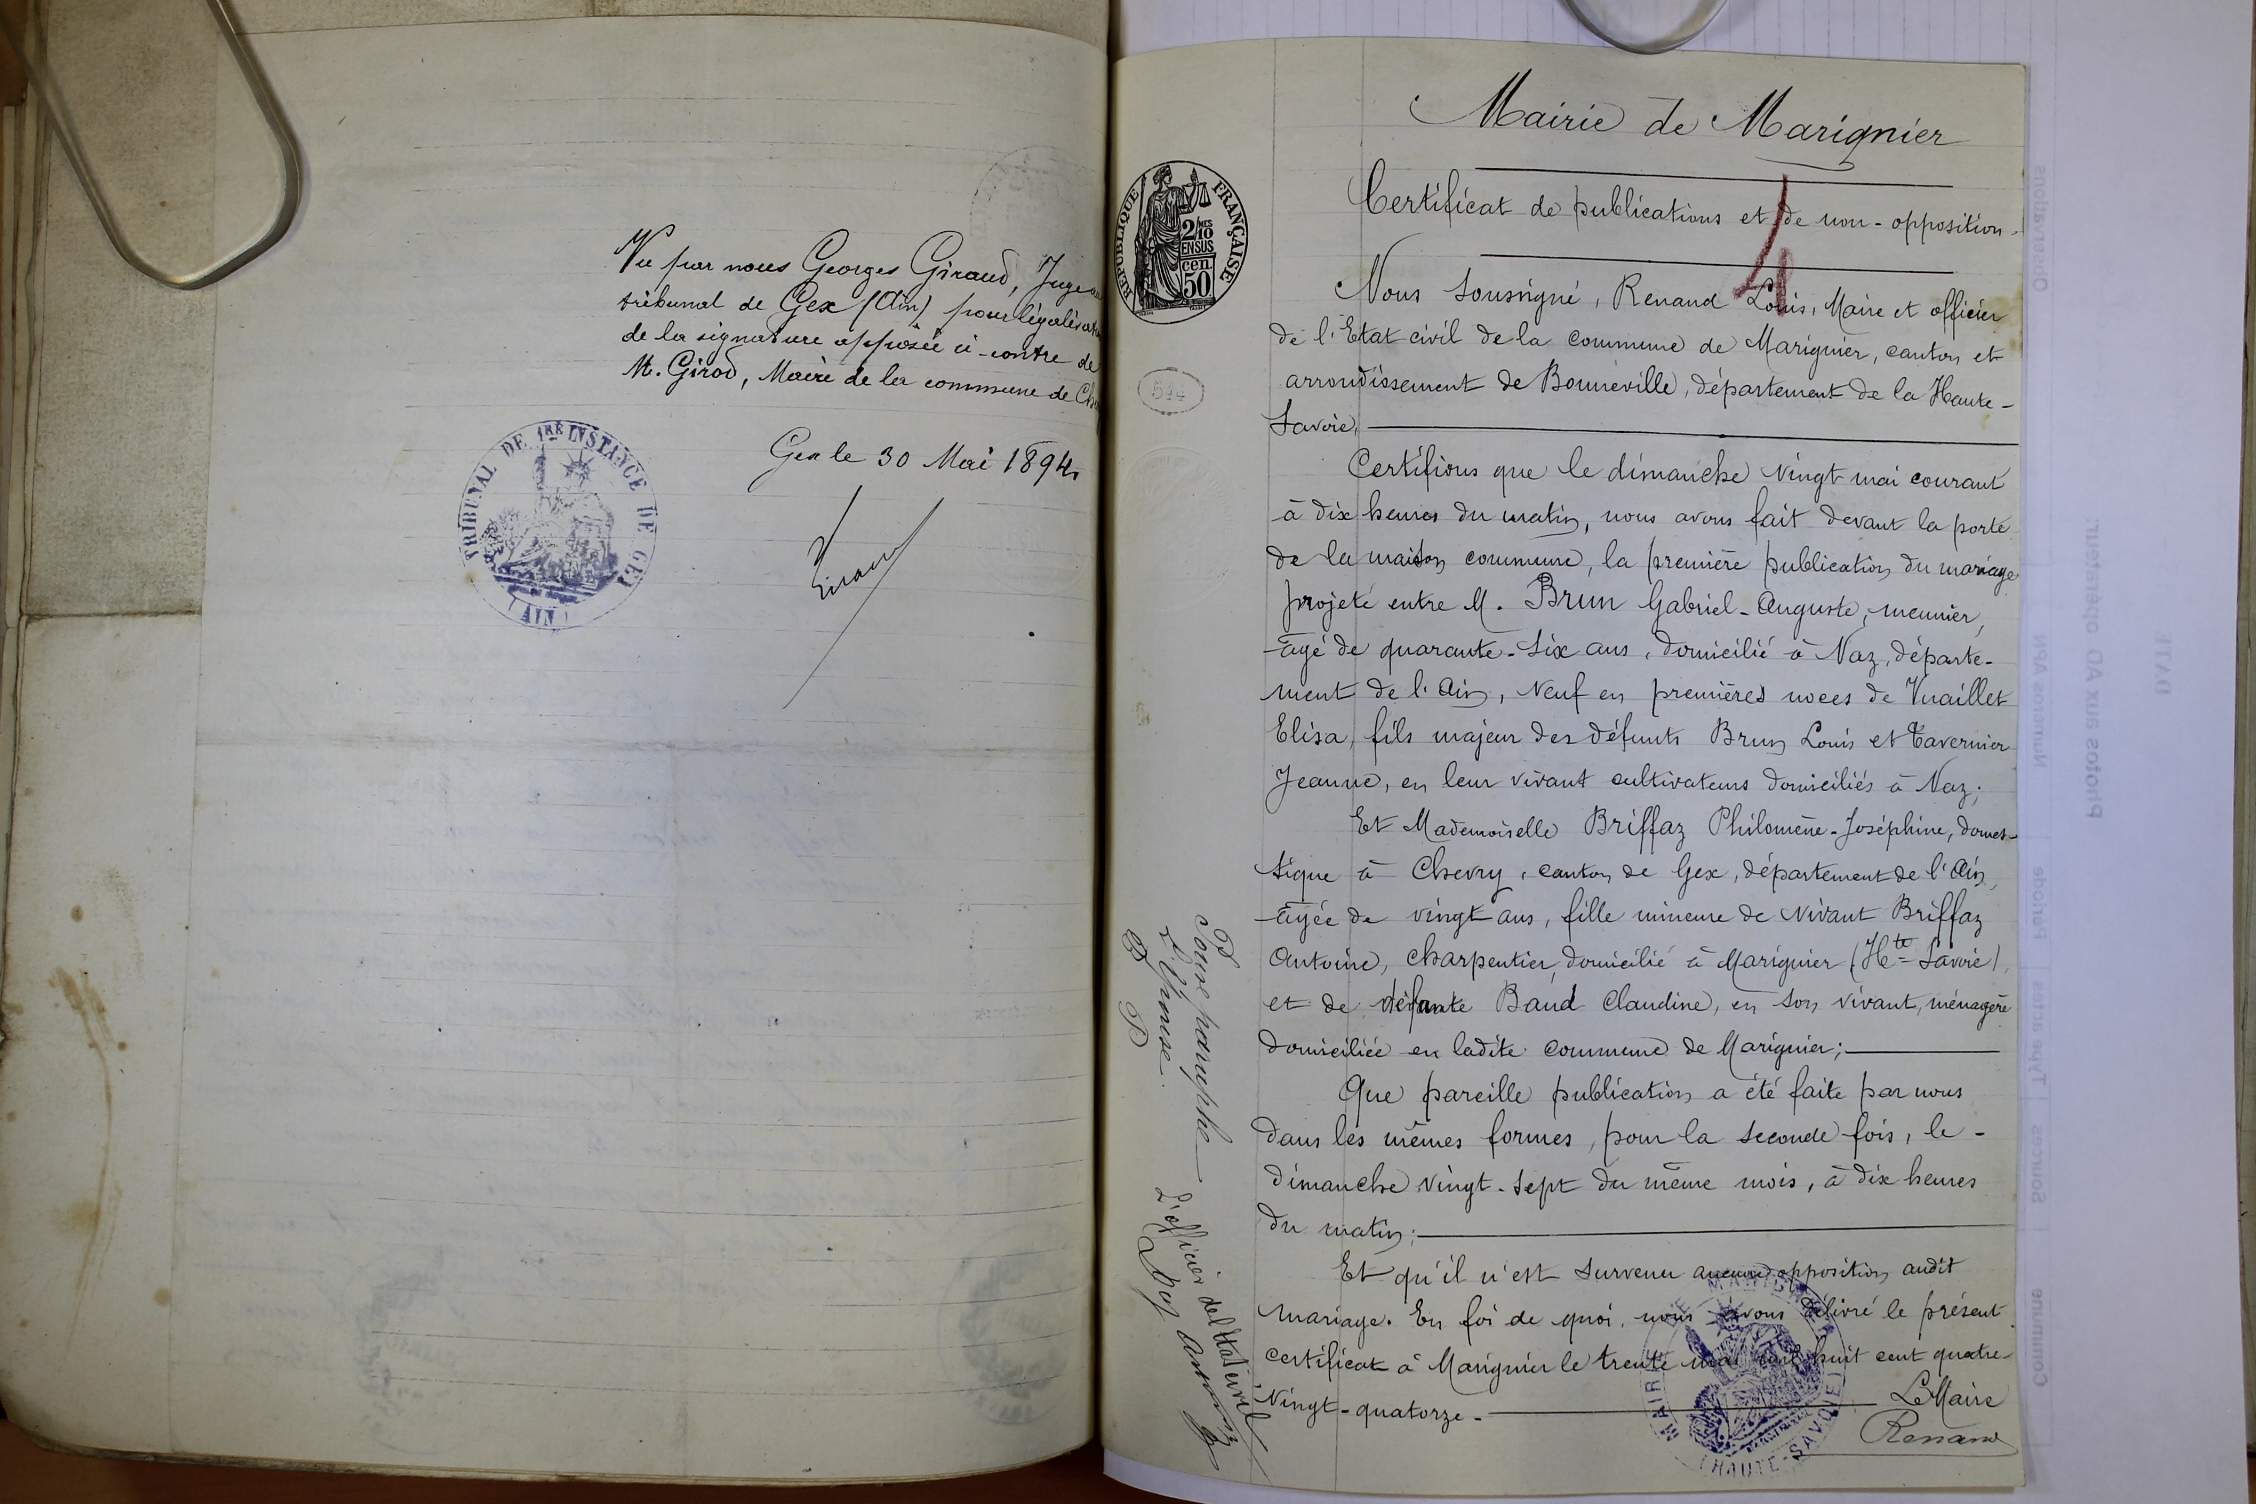 Vu par nous Georges Giraud, Juge au
tribunal de Gex (Ain) pour légalisation
de la signature apposée ci-contre de
M. Girod, Maire de la commune de
Gex le 30 Mai 1894
Giraud
TRIBUNAL DE 1RE INSTANCE DE GEX
(AIN)
Mairie de Marignier
Certificat de publications et de non-opposition.
4
RÉPUBLIQUE FRANÇAISE
2/10 MES
EN SUS
50 cen
594
Nous soussigné, Renand Louis, Maire et officier
de l'Etat civil de la commune de Marignier, canton et
arrondissement de Bonneville, département de la Haute-
Savoie,
Certifions que le dimanche vingt mai courant
à dix heures du matin, nous avons fait devant la porte
de la maison commune, la première publication du mariage
projeté entre M. Brun Gabriel-Auguste, meunier,
âgé de quarante-six ans, domicilié à Naz, départe-
ment de l'Ain, veuf en premières noces de Vuaillet
Elisa, fils majeur des défunts Brun Louis et Tavernier
Jeanne, en leur vivant cultivateurs domiciliés à Naz;
Et Mademoiselle Briffaz Philomène-Joséphine, domes-
tique à Chevry, canton de Gex, département de l'Ain,
âgée de vingt ans, fille mineure de vivant Briffaz
Antoine, charpentier, domicilié à Marignier (Hte-Savoie),
et de défunte Baud Claudine, en son vivant, ménagère
domiciliée en ladite commune de Marignier;
Que pareille publication a été faite par nous
dans les mêmes formes, pour la seconde fois, le
dimanche vingt-sept du même mois, à dix heures
du matin;
Et qu'il n'est survenu aucune opposition audit
mariage. En foi de quoi, nous avons délivré le présent
certificat à Marignier le trente mai mil huit cent quatre-
vingt-quatorze.
Le Maire
Renand
MAIRIE DE MARIGNIER
(HAUTE-SAVOIE)
Pour paraphe
L'Epouse.
B P
L'officier de l'Etat civil
Observations
Numéros APN
Photos aux AD opérateur:
DATE
Période
Type actes
Sources
Commune